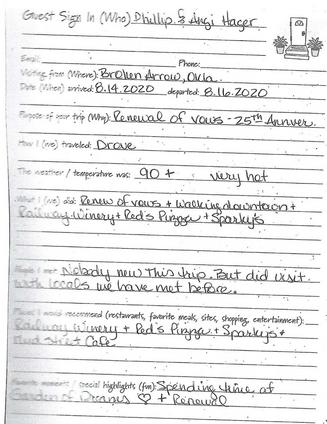 Guest Sign In (Who) Phillip & Angi Hager
Email: Phone:
Visiting from (Where): Broken Arrow, Okla.
Date (When) arrived: 8.14.2020 departed: 8.16.2020
Purpose of your trip (Why): Renewal of vows - 25th Anniver.
How I (we) traveled: Drove
The weather / temperature was: 90 + very hot
What I (we) did: Renew of vows + walking downtown +
Railway Winery + Red's Pizzza + Sparky's
People I met: Nobody new this trip. But did visit
with locals we have met before.
Places I would recommend (restaurants, favorite meals, sites, shopping, entertainment):
Railway Winery + Red's Pizzza + Sparky's +
Mud Street Cafe
Favorite moments / special highlights (fm): Spending time at
Garden of Dreams ♡ + Renewal